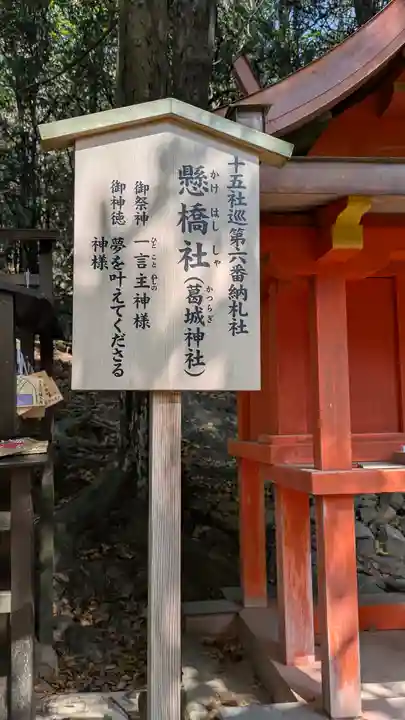 十五社巡第六番納札社
懸橋社(葛城神社)
かけはししゃ
かつらぎ
御祭神 一言主神様
ひとことぬしの
御神徳 夢を叶えてくださる
神様